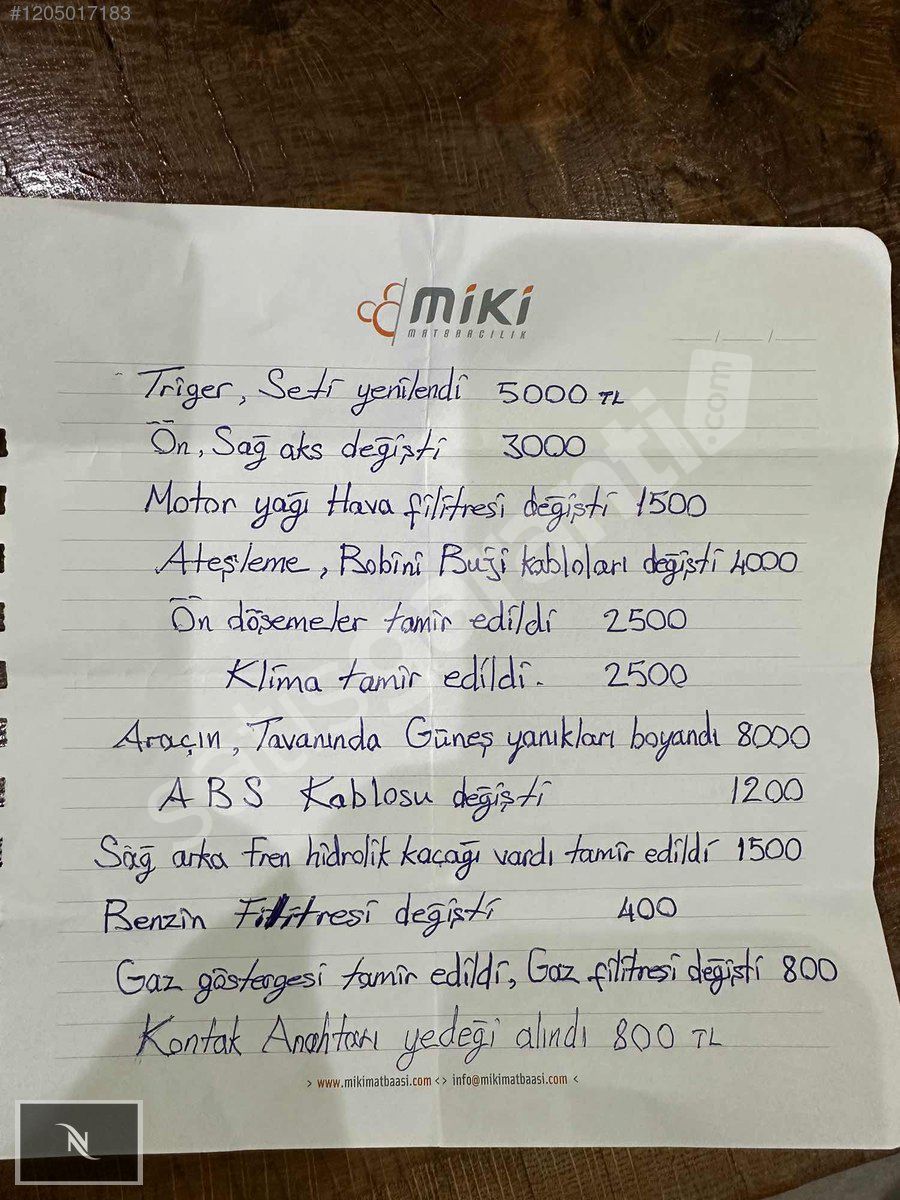 #1205017183
miki
MATBAACILIK
Triger, Seti yenilendi 5000 TL
Ön, Sağ aks değişti 3000
Motor yağı Hava filitresi değişti 1500
Ateşleme, Bobini Buji kabloları değişti 4000
Ön döşemeler tamir edildi 2500
Klima tamir edildi. 2500
Araçın, Tavanında Güneş yanıkları boyandı 8000
ABS Kablosu değişti 1200
Sağ arka fren hidrolik kaçağı vardı tamir edildi 1500
Benzin Filitresi değişti 400
Gaz göstergesi tamir edildi, Gaz filitresi değişti 800
Kontak Anahtarı yedeği alındı 800 TL
> www.mikimatbaasi.com <> info@mikimatbaasi.com <
satisgaranti.com
N